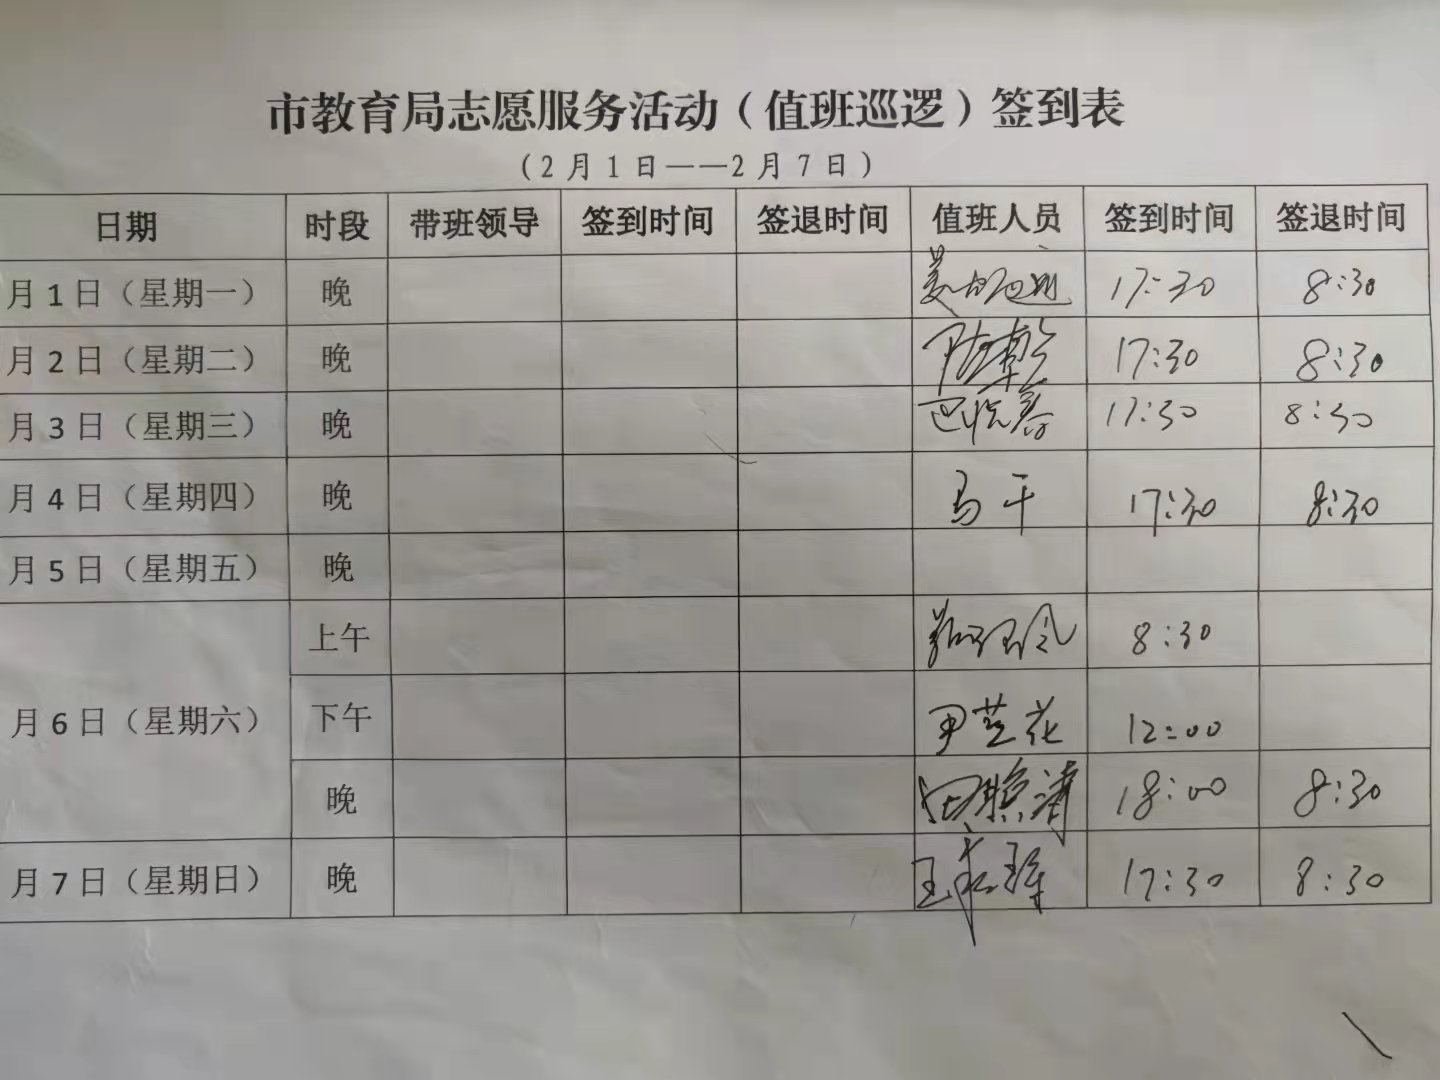 市教育局志愿服务活动（值班巡逻）签到表
（2月1日——2月7日）
日期 时段 带班领导 签到时间 签退时间 值班人员 签到时间 签退时间
月1日（星期一） 晚 17:30 8:30
月2日（星期二） 晚 17:30 8:30
月3日（星期三） 晚 17:30 8:30
月4日（星期四） 晚 马干 17:30 8:30
月5日（星期五） 晚
月6日（星期六） 上午 8:30
下午 尹芝花 12:00
晚 田照清 18:00 8:30
月7日（星期日） 晚 17:30 8:30